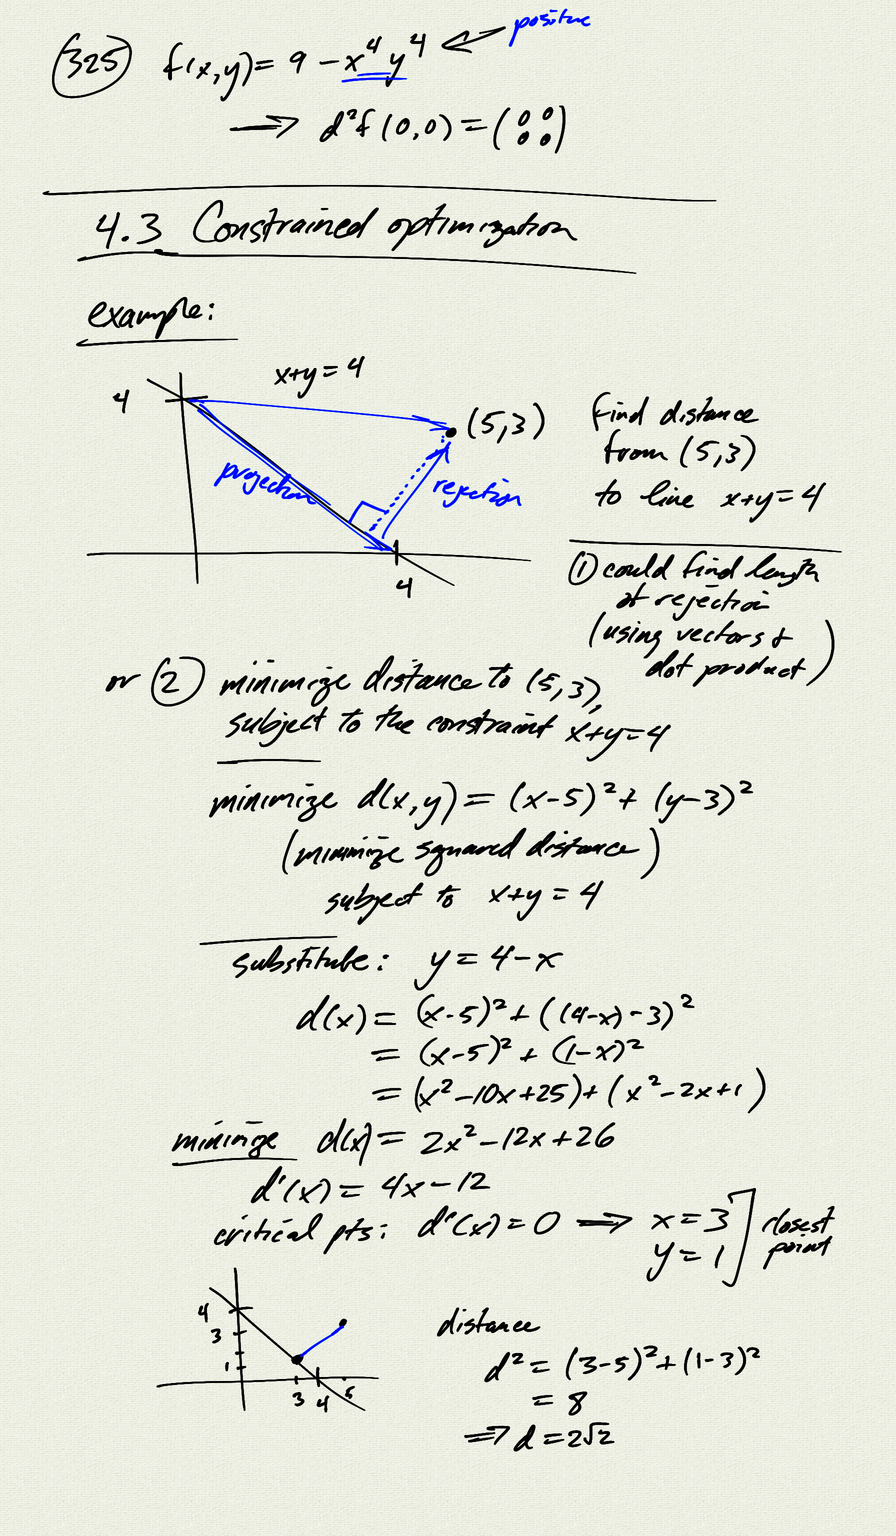 (325) f(x,y) = 9 - x⁴y⁴ positive
⟹ d²f(0,0) = (0 0 0 0)
4.3 Constrained optimization
example:
x+y = 4
4
(5,3)
projection
rejection
4
find distance
from (5,3)
to line x+y=4
① could find length
of rejection
(using vectors +
dot product)
or ② minimize distance to (5,3),
subject to the constraint x+y=4
minimize d(x,y) = (x-5)² + (y-3)²
(minimize squared distance)
subject to x+y = 4
substitute: y = 4-x
d(x) = (x-5)² + ((4-x)-3)²
= (x-5)² + (1-x)²
= (x²-10x+25)+(x²-2x+1)
minimize d(x) = 2x²-12x+26
d'(x) = 4x-12
critical pts: d'(x)=0 ⟹ x=3
y=1
closest
point
4
3
1
3 4 5
distance
d² = (3-5)²+(1-3)²
= 8
⟹ d = 2√2